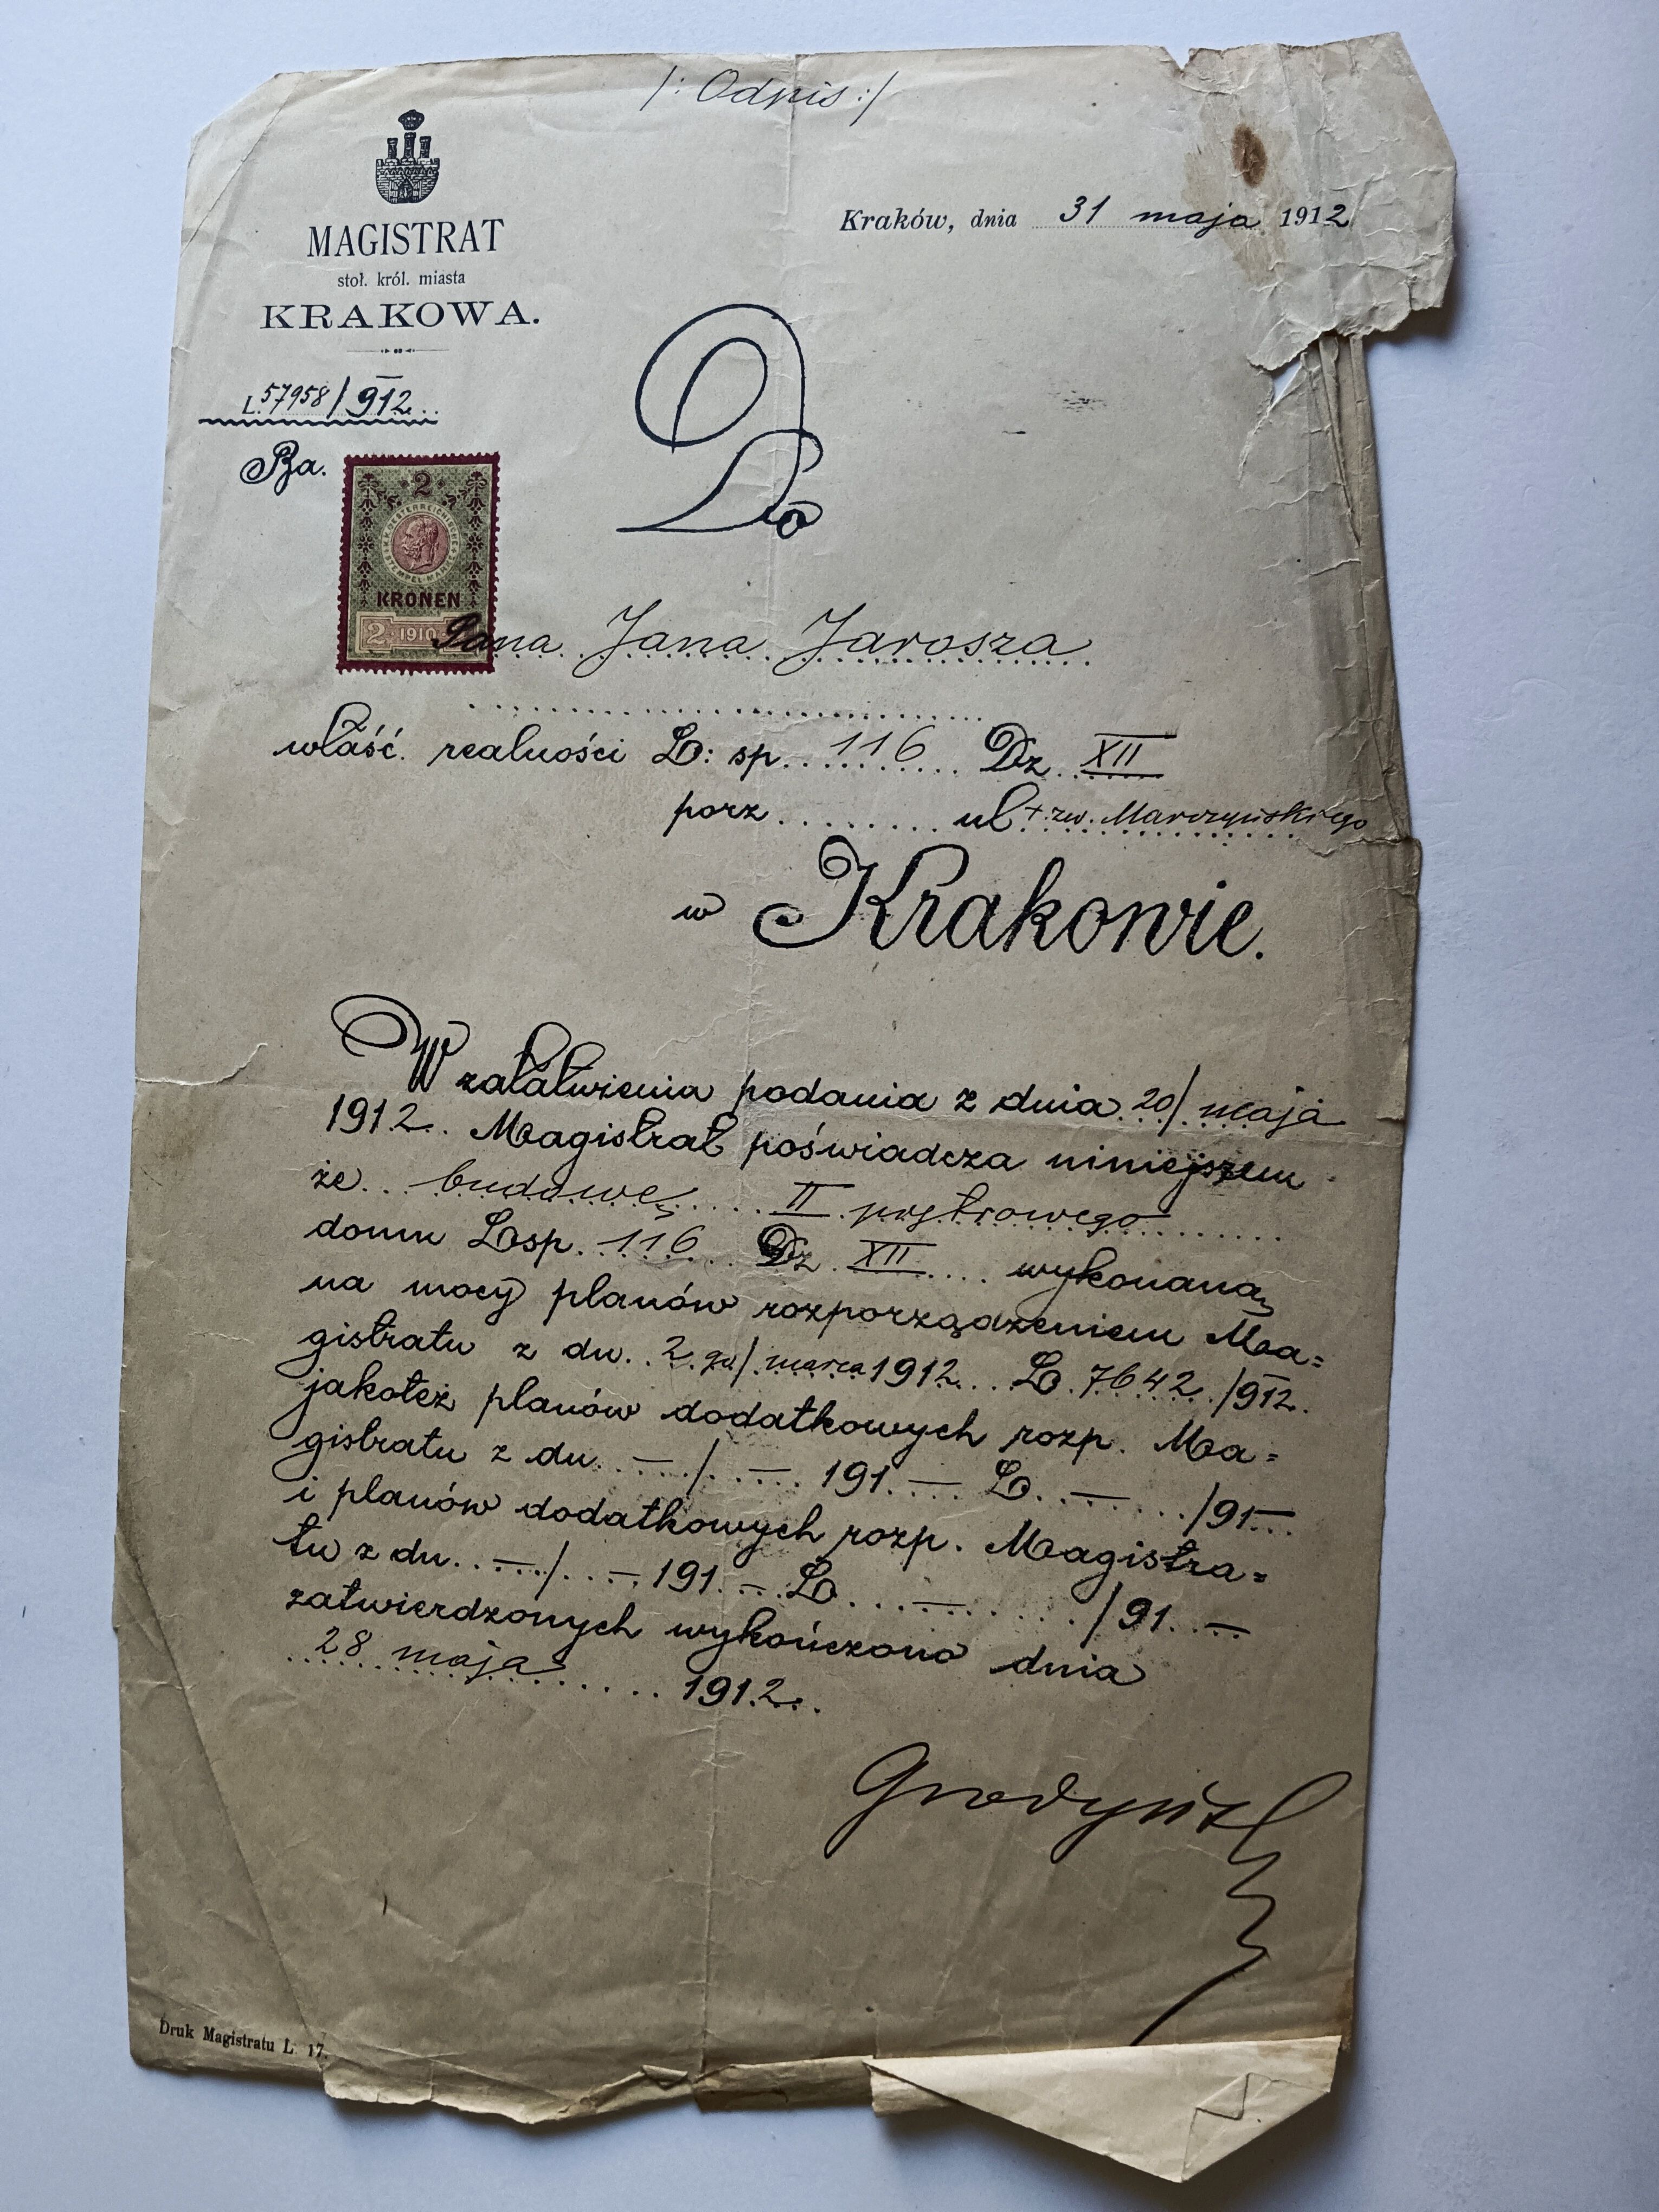 /: Odpis :/
MAGISTRAT
stoł. król. miasta
KRAKOWA.
Kraków, dnia 31 maja 1912
L. 57958/912
Ba.
2
OESTERREICHISCHE STEMPEL-MARKE
KRONEN
2 1910
Do
Pana Jana Jarosza
właść. realności L: sp. 116 Dz. XII
porz. ul. t. zw. Marczyńskiego
w Krakowie.
W załatwieniu podania z dnia 20/ maja
1912. Magistrat poświadcza niniejszem
że budowę II piętrowego
domu Lsp. 116 Dz. XII wykonaną
na mocy planów rozporządzeniem Ma=
gistratu z dn. 2 go/ marca 1912 L. 7642/912.
jakoteż planów dodatkowych rozp. Ma=
gistratu z dn. — / — 191 — L. — /91 —
i planów dodatkowych rozp. Magistra=
tu z dn. — / — 191 — L. — /91 —
zatwierdzonych wykończono dnia
28 maja 1912.
Druk Magistratu L. 17.